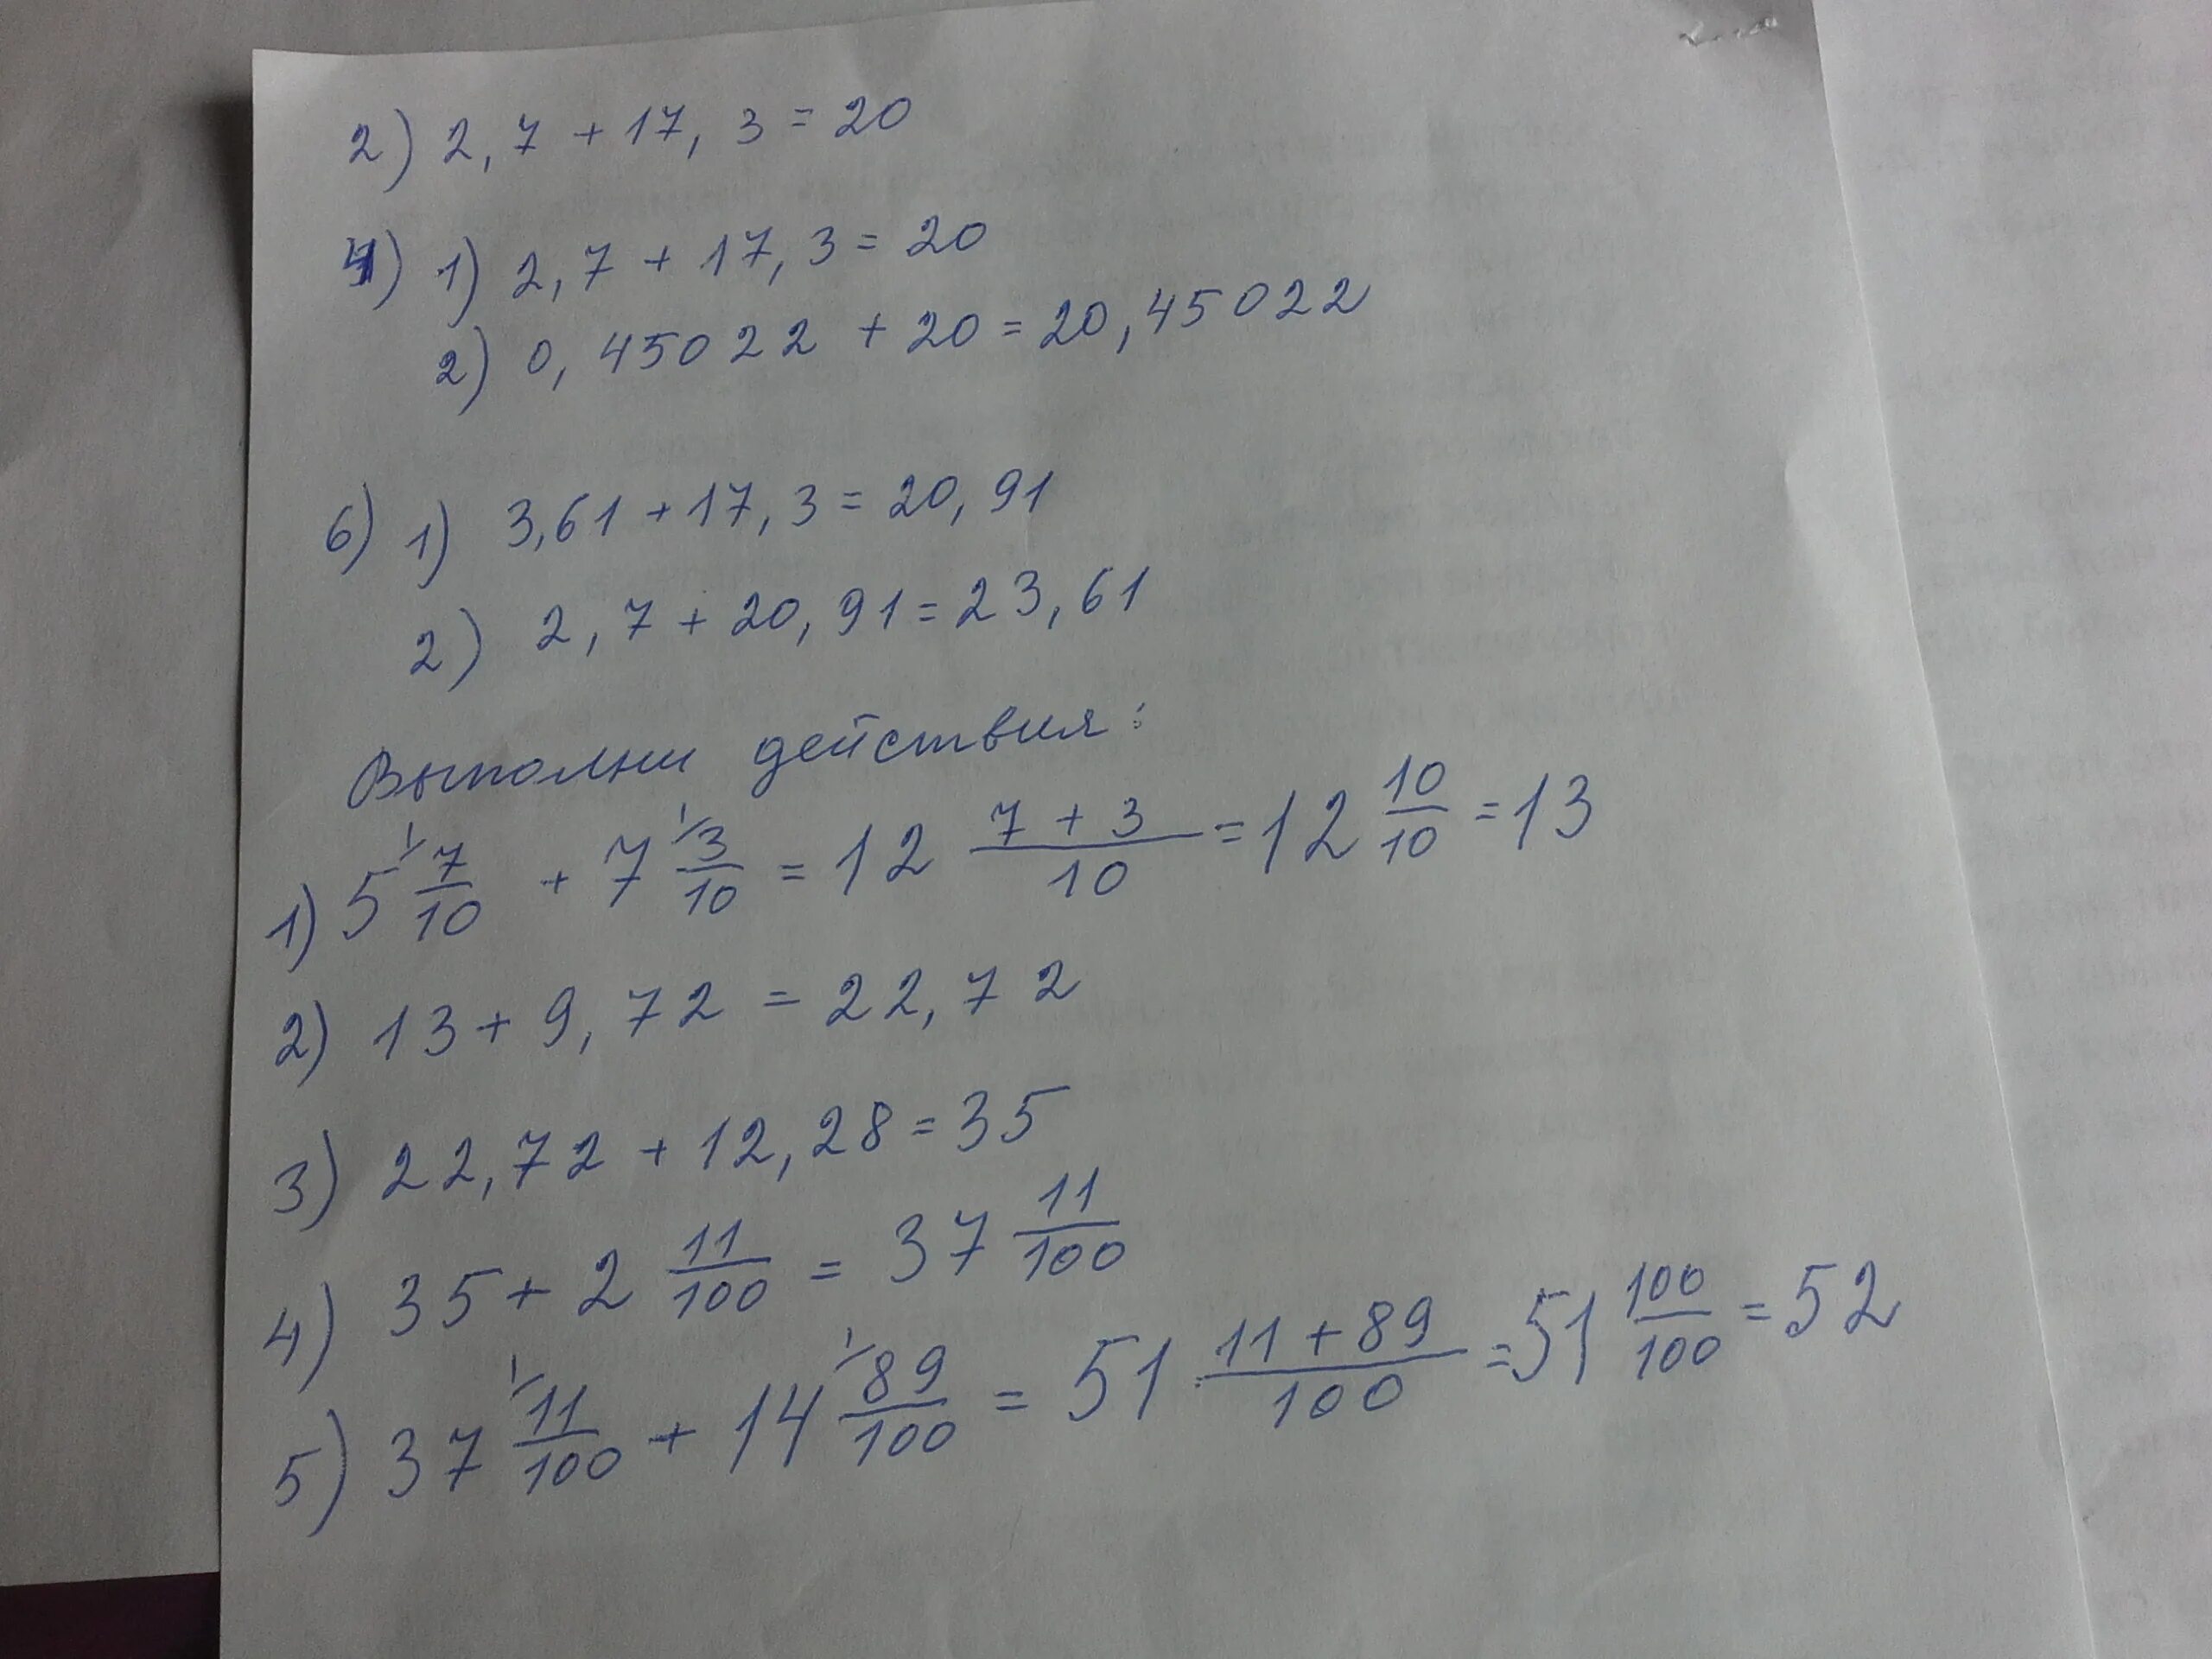 2) 2,7 + 17,3 = 20
4) 1) 2,7 + 17,3 = 20
2) 0,45022 + 20 = 20,45022
6) 1) 3,61 + 17,3 = 20,91
2) 2,7 + 20,91 = 23,61
Выполни действия:
1) 5 1/ 7/10 + 7 1/ 3/10 = 12 (7 + 3)/10 = 12 10/10 = 13
2) 13 + 9,72 = 22,72
3) 22,72 + 12,28 = 35
4) 35 + 2 11/100 = 37 11/100
5) 37 1/ 11/100 + 14 1/ 89/100 = 51 (11 + 89)/100 = 51 100/100 = 52